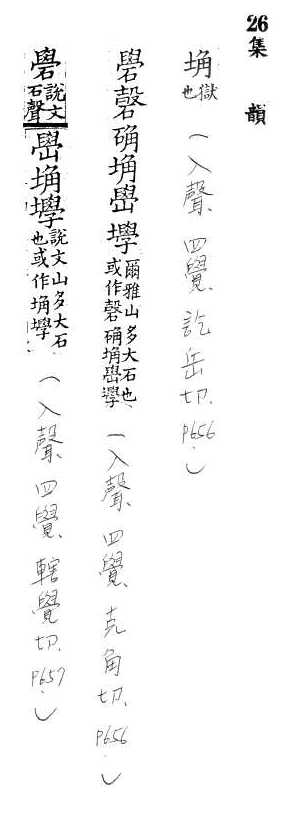 26 集 韻
埆 獄也 (入聲 四覺 訖岳切. P.656.)
礐 硞 确 埆 嶨 㙾 爾雅山多大石也或作硞确埆嶨㙾 (入聲 四覺 克角切. P.656.)
礐 說文石聲 嶨 埆 㙾 說文山多大石也或作埆㙾 (入聲 四覺 轄覺切. P.657.)